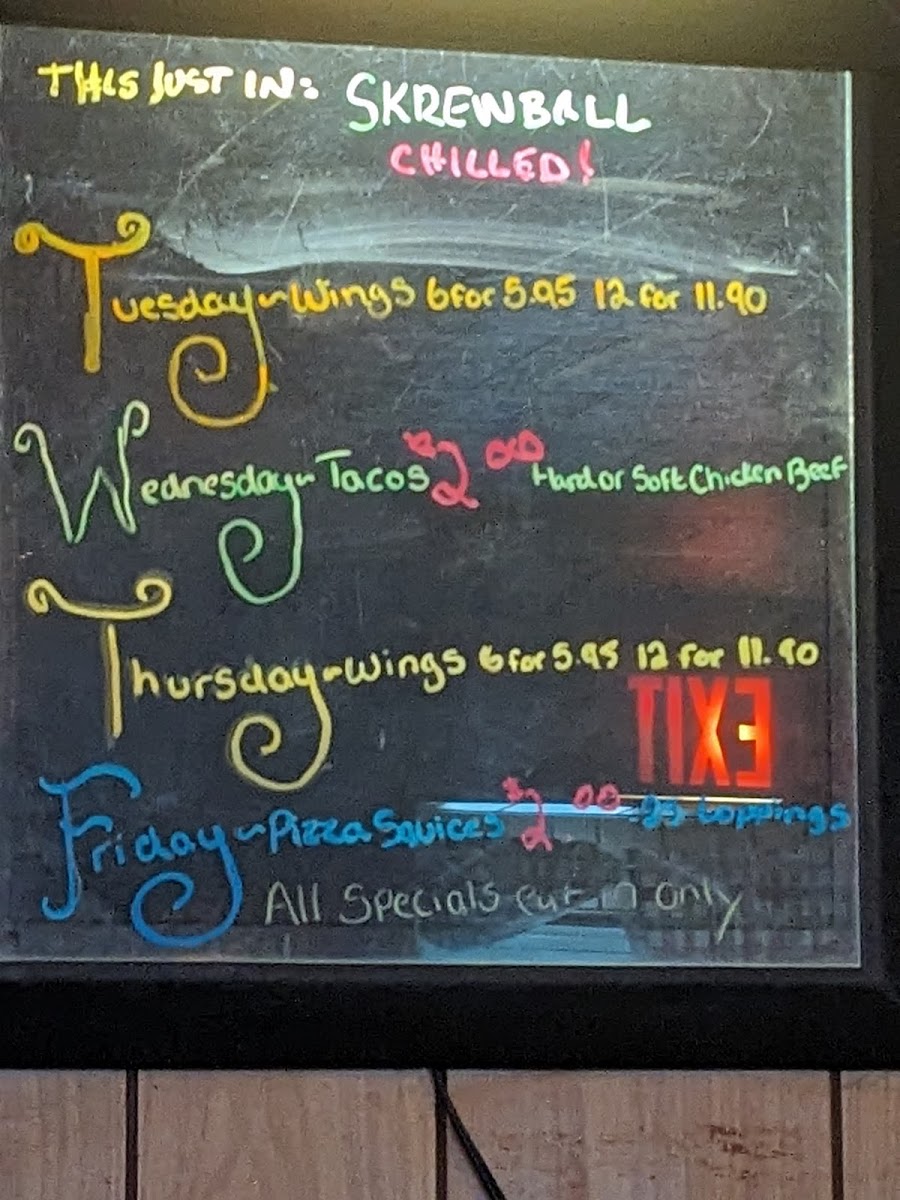 THIS JUST IN: SKREWBALL
CHILLED!
Tuesday~Wings 6 for 5.95 12 for 11.90
Wednesday~Tacos $2.00 Hard or Soft Chicken Beef
Thursday~Wings 6 for 5.95 12 for 11.90
EXIT
Friday~Pizza Squices $2.00 .25 toppings
All Specials eat in only